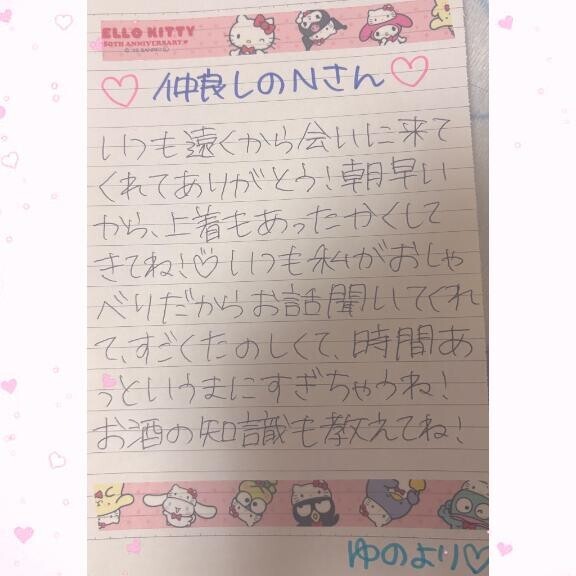 ELLO KITTY
50TH ANNIVERSARY
仲良しのNさん
いつも遠くから会いに来て
くれてありがとう!朝早い
から、上着もあったかくして
きてね!♡いつも私がおしゃ
べりだからお話聞いてくれ
て、すごくたのしくて、時間あ
っというまにすぎちゃうね!
お酒の知識も教えてね!
ゆのより♡